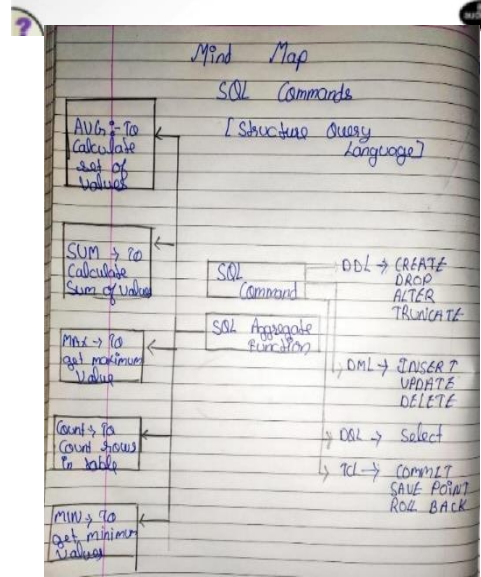 ?
Mind Map
SQL Commands
[Structure Query
Language]
AVG :- To
Calculate
set of
values
SUM → To
Calculate
Sum of values
MAX → To
get maximum
Value
Count → To
Count rows
in table
MIN → To
get minimum
values
SQL
Command
SQL Aggregate
Function
DDL → CREATE
DROP
ALTER
TRUNCATE
DML → INSERT
UPDATE
DELETE
DQL → Select
TCL → COMMIT
SAVE POINT
ROLL BACK